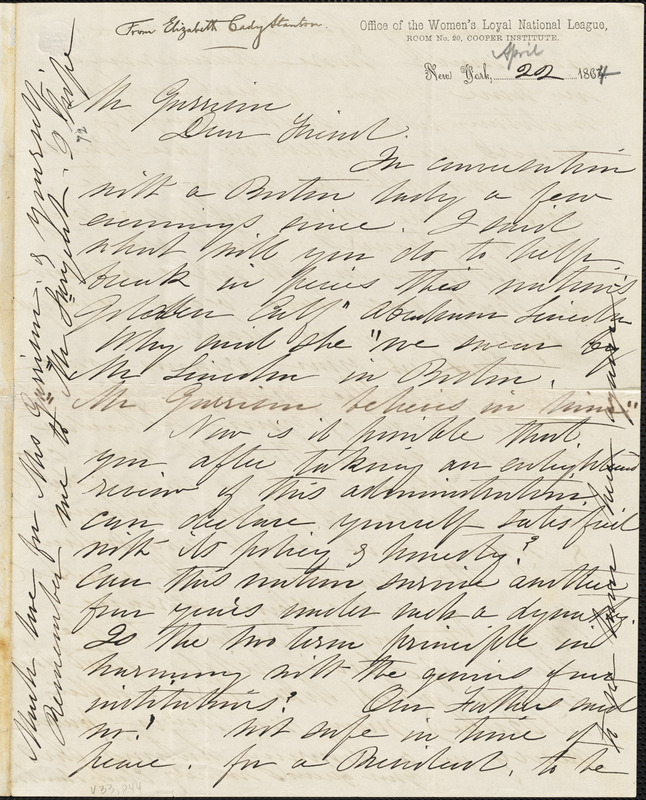 From Elizabeth Cady Stanton.
Office of the Women's Loyal National League,
ROOM No. 20, COOPER INSTITUTE.
April
New York, 22 1864
Mr Garrison
Dear Friend.
In conversation
with a Boston lady a few
evenings since. I said
what will you do to help
break in pieces this nation's
Golden Calf" Abraham Lincoln
Why said she "we swear by
Mr Lincoln in Boston.
"Mr Garrison believes in him"
Now is it possible that
you after taking an enlightened
review of this administration
can declare yourself satisfied
with its policy & honesty?
Can this nation survive another
four years under such a dynasty.
Is the two term principle in
harmony with the genius of our
institutions? Our Fathers said
no! not safe in time of
peace. for a President, to be
Remember me to Mr
for Mrs Garrison & yourself.
V33, 044